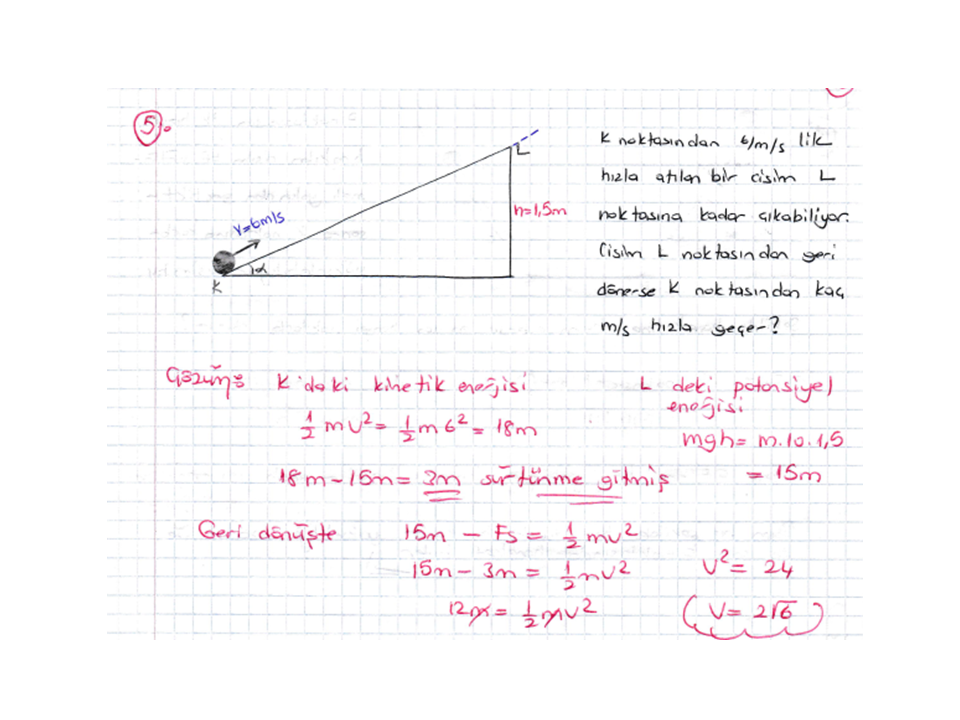 5.
L
h=1,5m
V=6m/s
α
K
K noktasından 6/m/s lik
hızla atılan bir cisim L
noktasına kadar çıkabiliyor.
Cisim L noktasından geri
dönerse K noktasından kaç
m/s hızla geçer?
Çözüm: K'daki kinetik enerjisi
1/2 mv² = 1/2 m 6² = 18m
L deki potansiyel
enerjisi
mgh = m.10.1,5
= 15m
18m - 15m = 3m sürtünme gitmiş
Geri dönüşte 15m - Fs = 1/2 mv²
15m - 3m = 1/2 mv²
12m = 1/2 mv²
V² = 24
V = 2√6